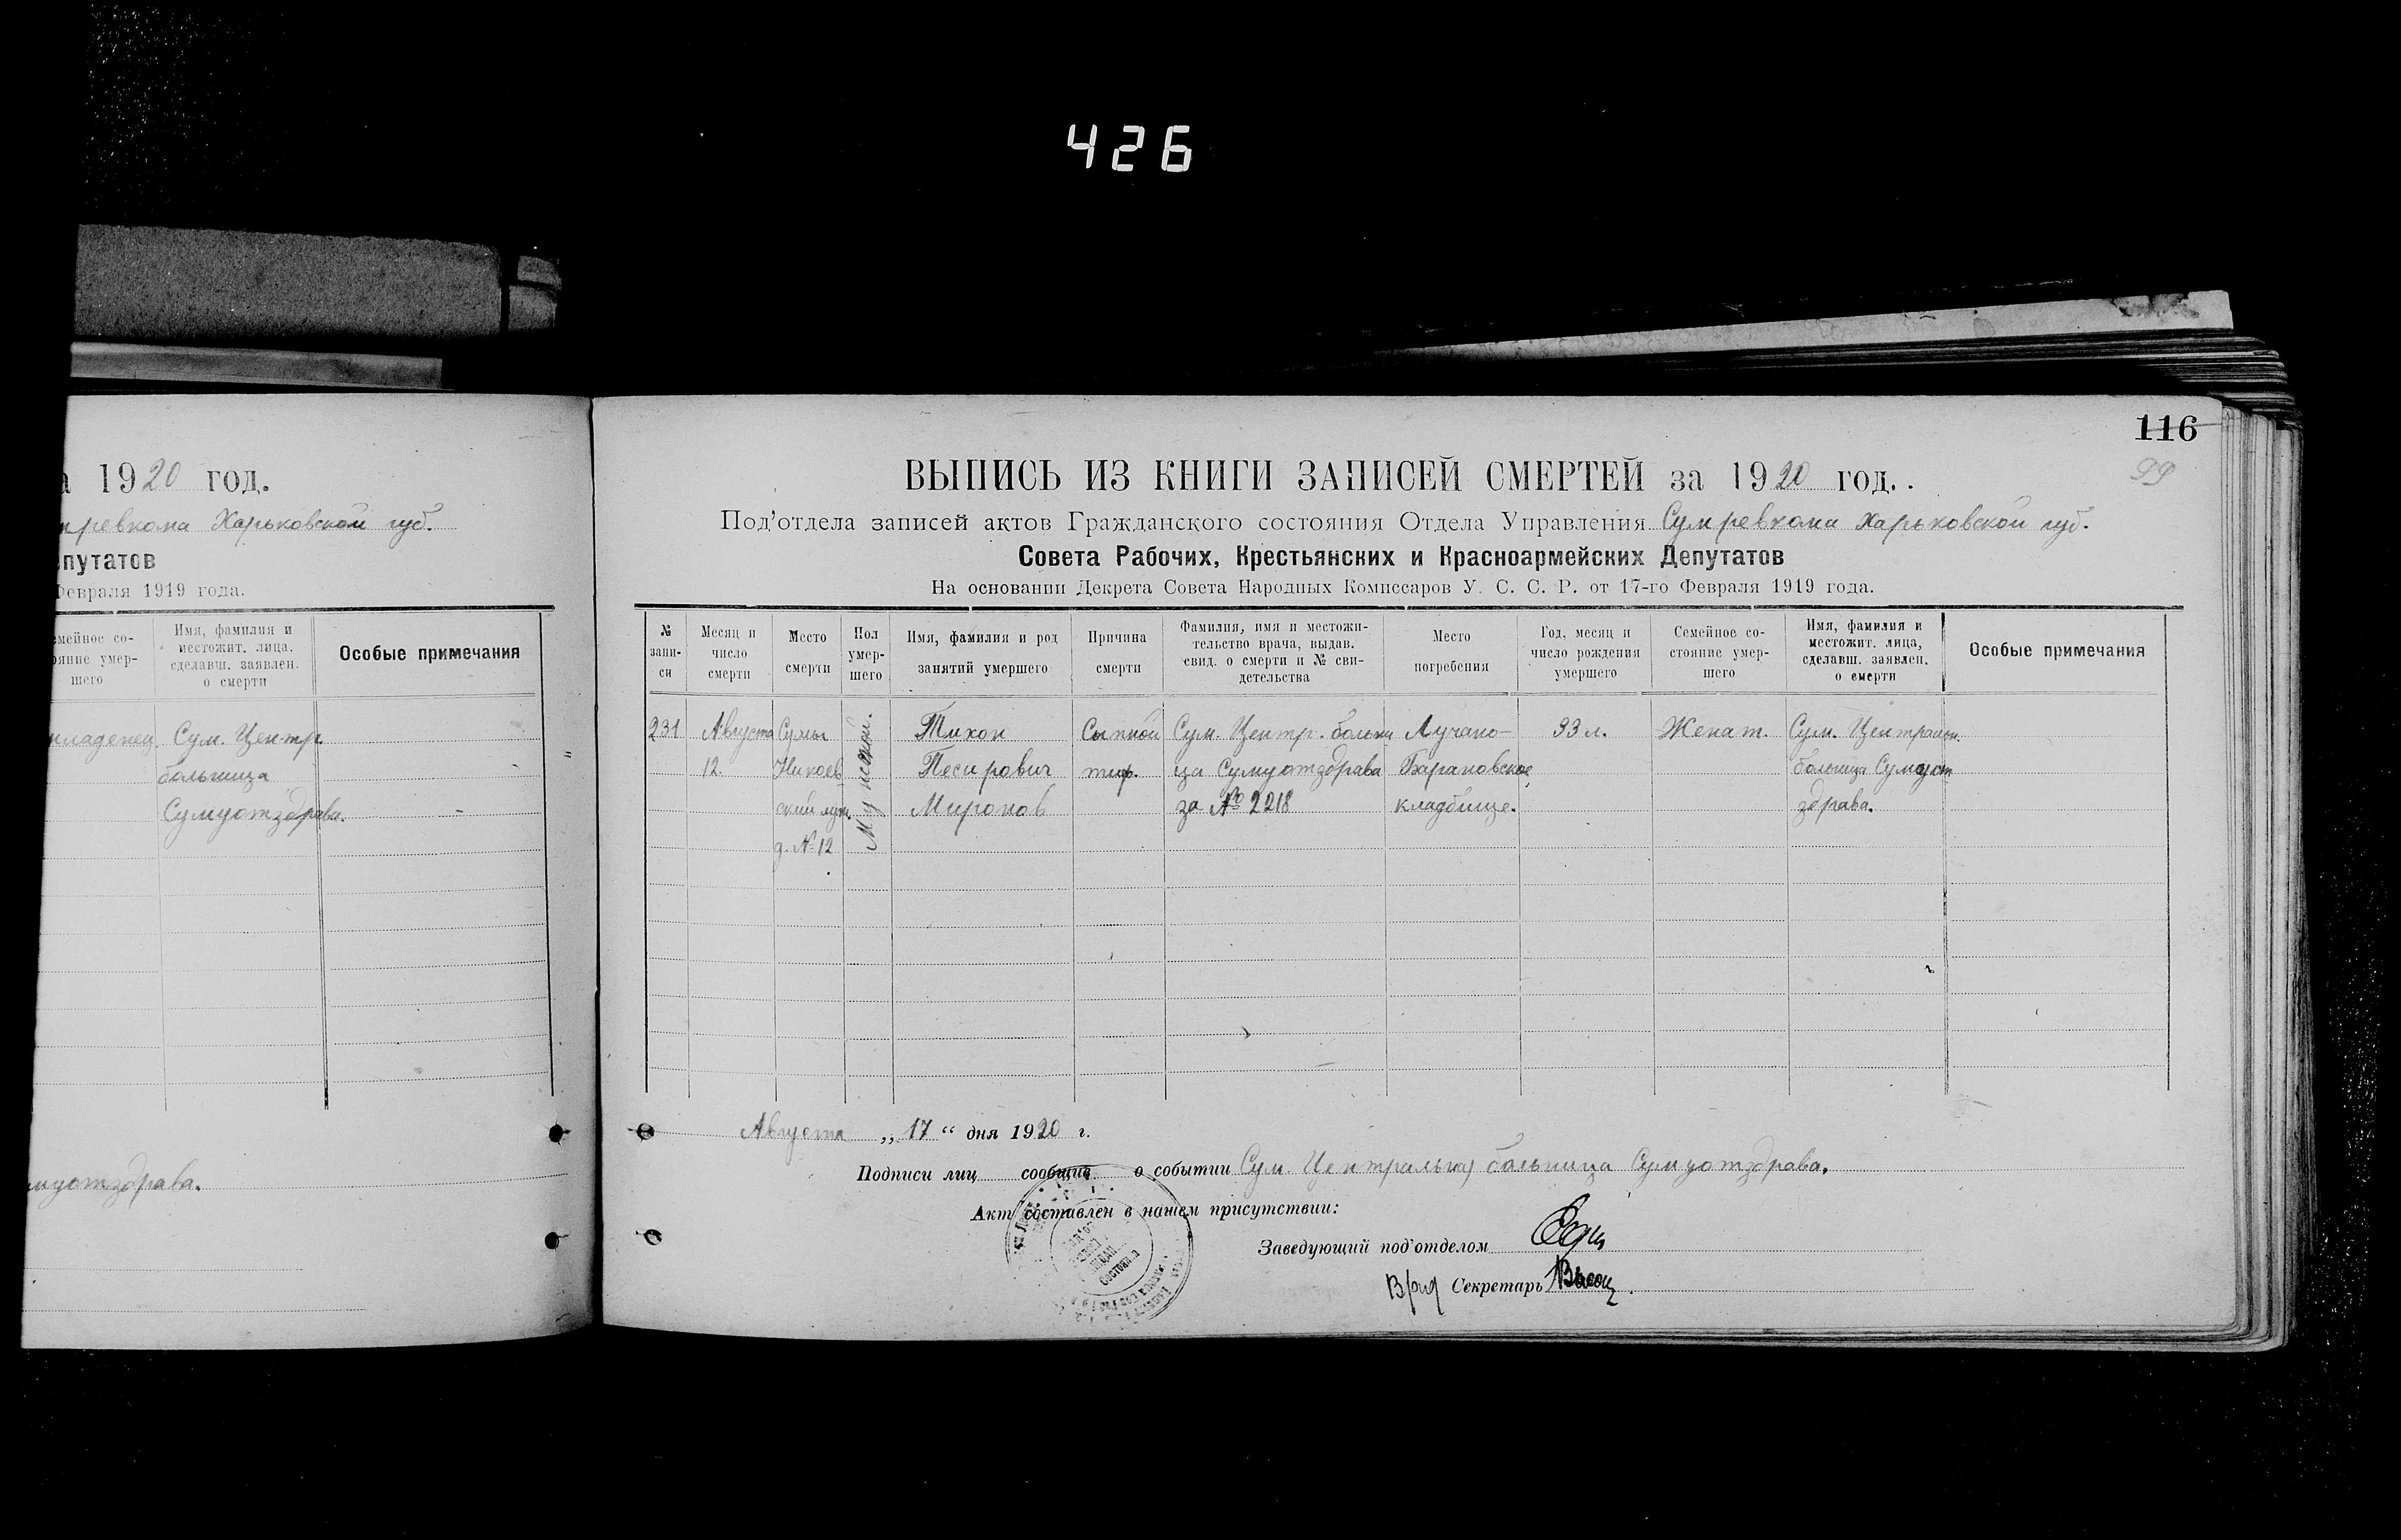 426
а 1920 год.
превкома Харьковской губ.
путатов
Февраля 1919 года.
Имя, фамилия и
местожит. лица.
сделавш. заявлен.
о смерти
Особые примечания
младенец.
Сум. Центр.
больница
Сумуотздрава.
муотздрава.
116
99
ВЫПИСЬ ИЗ КНИГИ ЗАПИСЕЙ СМЕРТЕЙ за 1920 год.
Под'отдела записей актов Гражданского состояния Отдела Управления Сумревкома Харьковской губ.
Совета Рабочих, Крестьянских и Красноармейских Депутатов
На основании Декрета Совета Народных Комиссаров У. С. С. Р. от 17-го Февраля 1919 года.
№
запи-
си
Месяц и
число
смерти
Место
смерти
Пол
умер-
шего
Имя, фамилия и род
занятий умершего
Причина
смерти
Фамилия, имя и местожи-
тельство врача, выдав.
свид. о смерти и № сви-
детельства
Место
погребения
Год, месяц и
число рождения
умершего
Семейное со-
стояние умер-
шего
Имя, фамилия и
местожит. лица,
сделавш. заявлен.
о смерти
Особые примечания
231
Августа
12.
Сумы
д. № 12
Тихон
Миронов
Сыпной
тиф.
Сум. Центр. больни
ца Сумуотздрава
за № 2218
Лучано-
Барановское
кладбище.
33 л.
Женат.
Сум. Центральн.
больница Сумуот
здрава.
Августа „17“ дня 1920 г.
Подписи лиц сообщив. о событии Сум. Центральная больница Сумуотздрава.
Акт составлен в нашем присутствии:
Заведующий под'отделом
Врид Секретарь